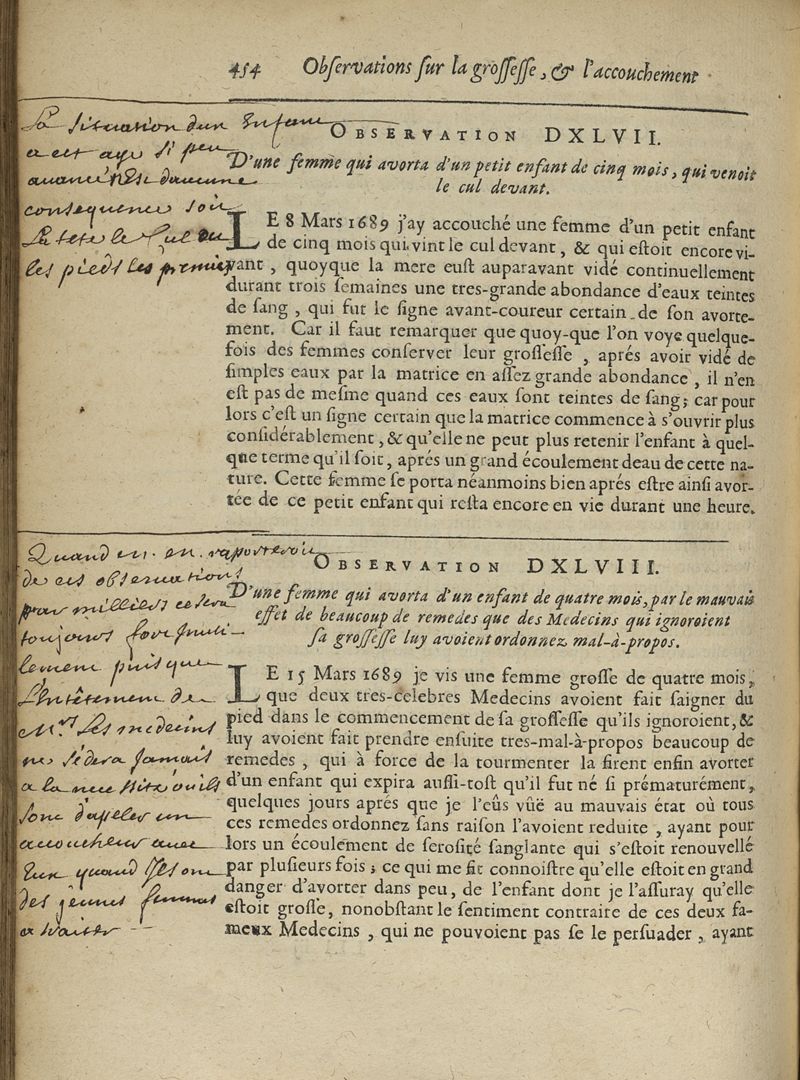 454 Obſervations ſur la groſſeſſe, & l'accouchement
La situation d'un Enfant
a cet age si peu
avancé n'est d'aucune
consequence soit
La teste le Cul ou
les pieds les premiers
OBSERVATION DXLVII.
D'une femme qui avorta d'un petit enfant de cinq mois, qui venoit
le cul devant.
LE 8 Mars 1689 j'ay accouché une femme d'un petit enfant
de cinq mois qui vint le cul devant, & qui eſtoit encore vi-
vant, quoyque la mere euſt auparavant vidé continuellement
durant trois ſemaines une tres-grande abondance d'eaux teintes
de ſang, qui fut le ſigne avant-coureur certain de ſon avorte-
ment. Car il faut remarquer que quoy-que l'on voye quelque-
fois des femmes conſerver leur groſſeſſe, aprés avoir vidé de
ſimples eaux par la matrice en aſſez grande abondance, il n'en
eſt pas de meſme quand ces eaux ſont teintes de ſang; car pour
lors c'eſt un ſigne certain que la matrice commence à s'ouvrir plus
conſidérablement, & qu'elle ne peut plus retenir l'enfant à quel-
que terme qu'il ſoit, aprés un grand écoulement deau de cette na-
ture. Cette femme ſe porta néanmoins bien aprés eſtre ainſi avor-
tée de ce petit enfant qui reſta encore en vie durant une heure.
Quand on en rapporteroit
de ces observations
par milliers ce sera
toujours fort
puis que
L'entêtement de
ces Mrs Les medecins
ne cedera jamais
a la
d'apeler un
accoucheur
quand
des jeunes femmes
a traiter --
OBSERVATION DXLVIII.
D'une femme qui avorta d'un enfant de quatre mois, par le mauvais
effet de beaucoup de remedes que des Medecins qui ignoroient
ſa groſſeſſe luy avoient ordonnez mal-à-propos.
LE 15 Mars 1689 je vis une femme groſſe de quatre mois,
que deux tres-celebres Medecins avoient fait ſaigner du
pied dans le commencement de ſa groſſeſſe qu'ils ignoroient, &
luy avoient fait prendre enſuite tres-mal-à-propos beaucoup de
remedes, qui à force de la tourmenter la firent enfin avorter
d'un enfant qui expira auſſi-toſt qu'il fut né ſi prématurément,
quelques jours aprés que je l'eûs vûë au mauvais état où tous
ces remedes ordonnez ſans raiſon l'avoient reduite, ayant pour
lors un écoulement de ſeroſité ſanglante qui s'eſtoit renouvellé
par pluſieurs fois; ce qui me fit connoiſtre qu'elle eſtoit en grand
danger d'avorter dans peu, de l'enfant dont je l'aſſuray qu'elle
eſtoit groſſe, nonobſtant le ſentiment contraire de ces deux fa-
meux Medecins, qui ne pouvoient pas ſe le perſuader, ayant